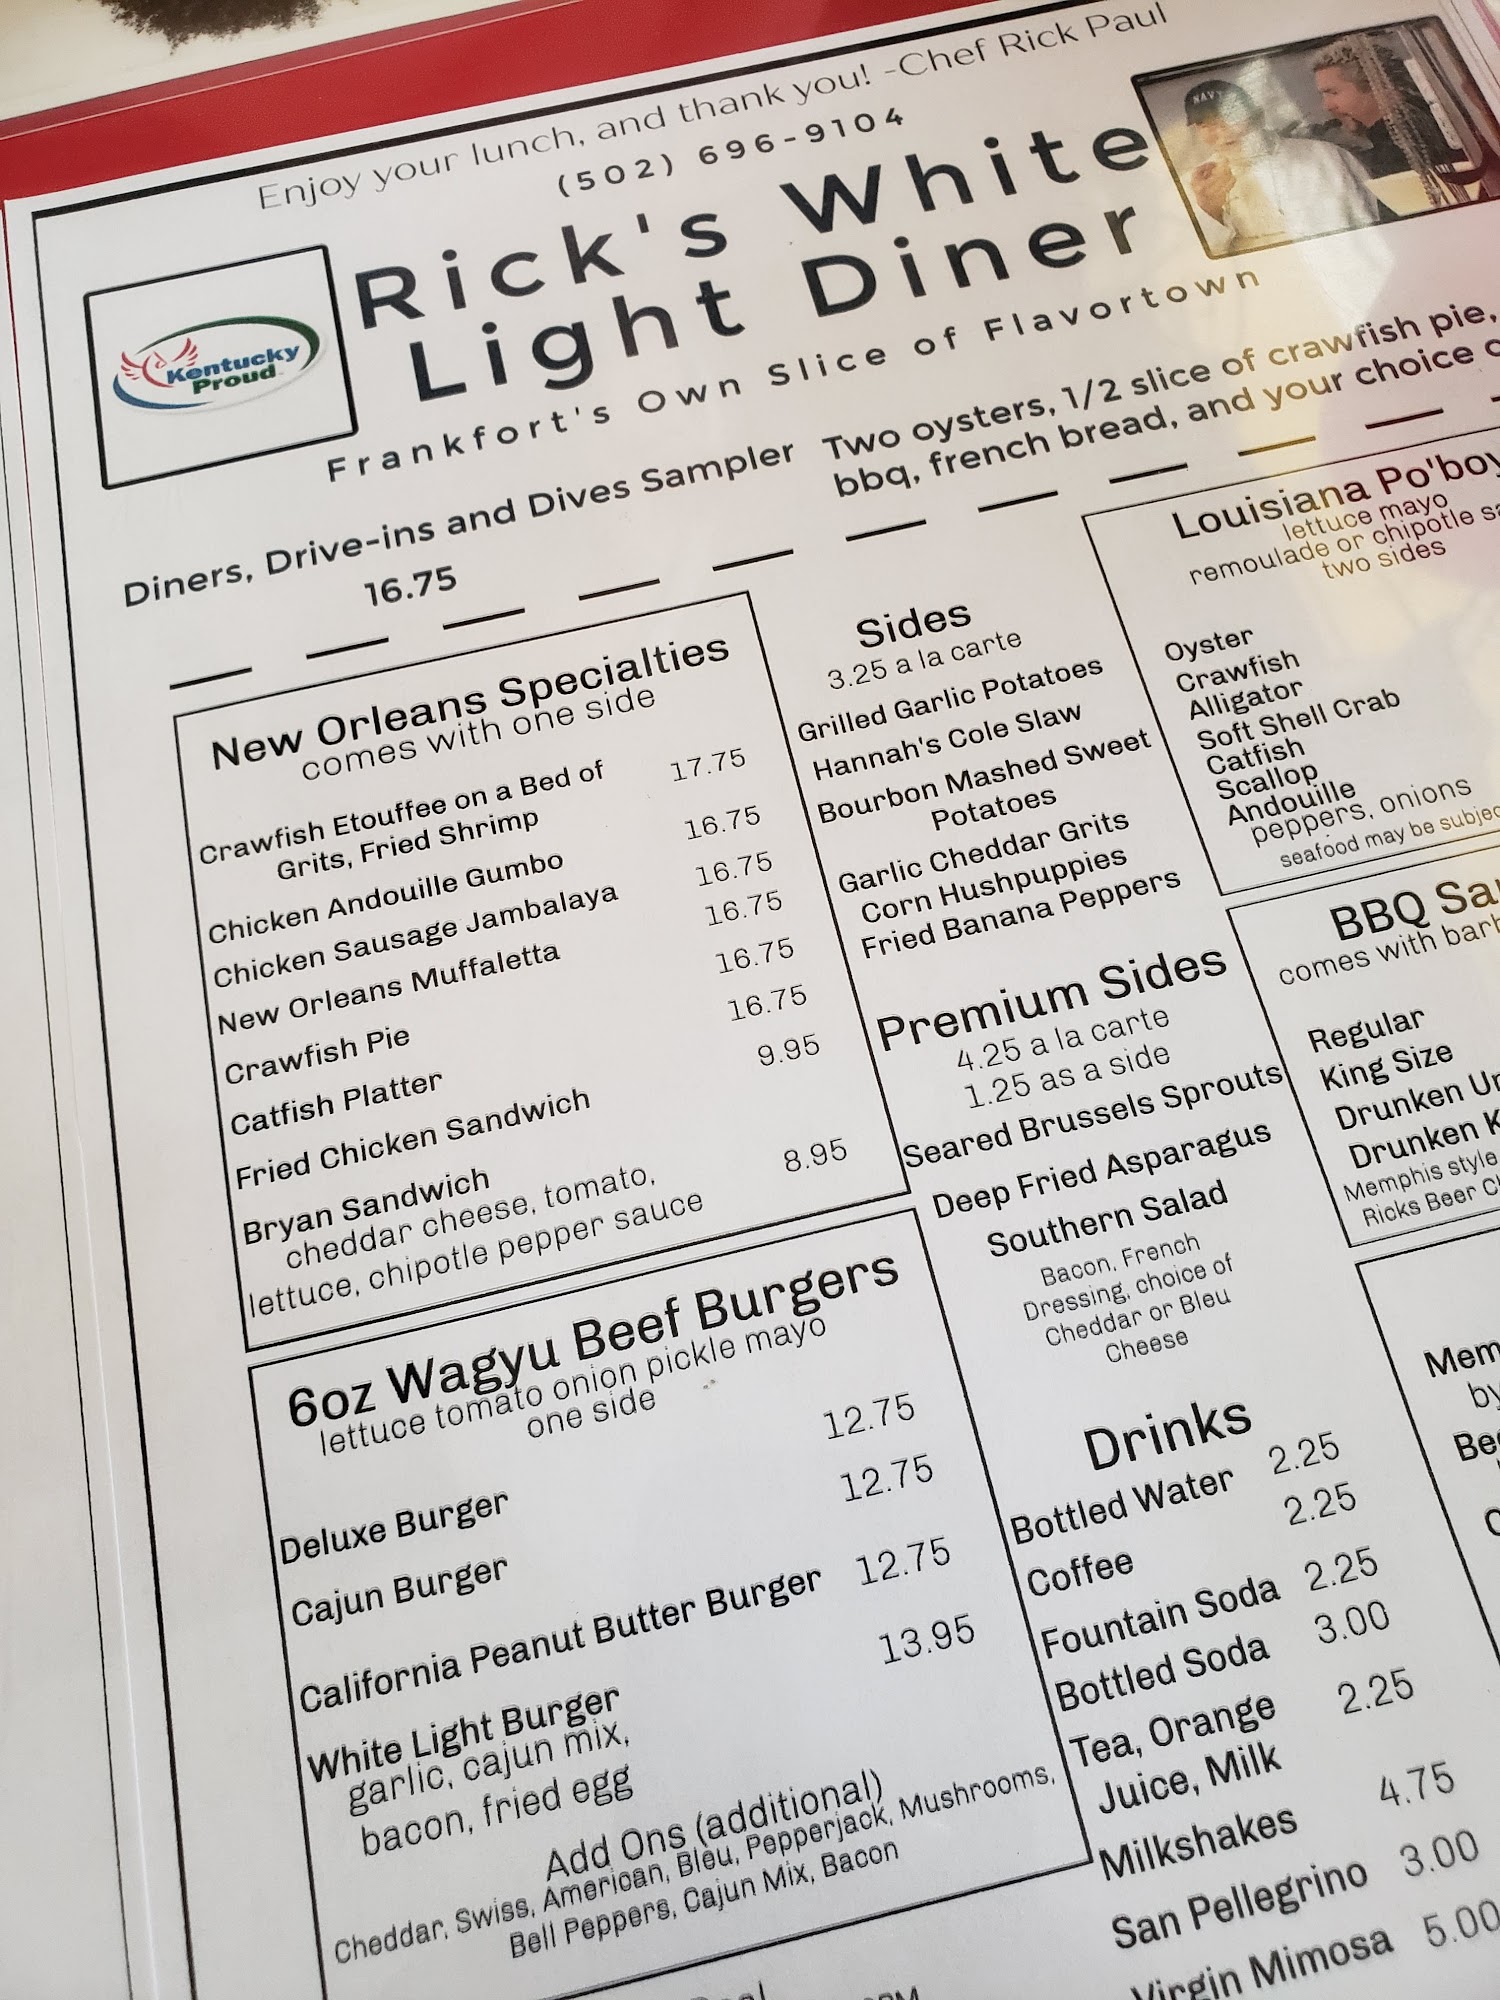 Enjoy your lunch, and thank you! -Chef Rick Paul
(502) 696-9104
Rick's White
Light Diner
Frankfort's Own Slice of Flavortown
Kentucky
Proud
NAVY
Diners, Drive-ins and Dives Sampler
16.75
Two oysters, 1/2 slice of crawfish pie,
bbq, french bread, and your choice
New Orleans Specialties
comes with one side
Crawfish Etouffee on a Bed of
Grits, Fried Shrimp
17.75
Chicken Andouille Gumbo
16.75
Chicken Sausage Jambalaya
16.75
New Orleans Muffaletta
16.75
Crawfish Pie
16.75
Catfish Platter
16.75
Fried Chicken Sandwich
9.95
Bryan Sandwich
8.95
cheddar cheese, tomato,
lettuce, chipotle pepper sauce
6oz Wagyu Beef Burgers
lettuce tomato onion pickle mayo
one side
Deluxe Burger
12.75
Cajun Burger
12.75
California Peanut Butter Burger
12.75
White Light Burger
13.95
garlic, cajun mix,
bacon, fried egg
Add Ons (additional)
Cheddar, Swiss, American, Bleu, Pepperjack, Mushrooms,
Bell Peppers, Cajun Mix, Bacon
Sides
3.25 a la carte
Grilled Garlic Potatoes
Hannah's Cole Slaw
Bourbon Mashed Sweet
Potatoes
Garlic Cheddar Grits
Corn Hushpuppies
Fried Banana Peppers
Premium Sides
4.25 a la carte
1.25 as a side
Seared Brussels Sprouts
Deep Fried Asparagus
Southern Salad
Bacon, French
Dressing, choice of
Cheddar or Bleu
Cheese
Drinks
Bottled Water 2.25
Coffee 2.25
Fountain Soda 2.25
Bottled Soda 3.00
Tea, Orange 2.25
Juice, Milk
Milkshakes 4.75
San Pellegrino 3.00
Virgin Mimosa 5.00
Louisiana Po'boy
lettuce mayo
remoulade or chipotle
two sides
Oyster
Crawfish
Alligator
Soft Shell Crab
Catfish
Scallop
Andouille
peppers, onions
seafood may be
BBQ
comes with
Regular
King Size
Drunken
Drunken
Memphis style
Ricks Beer